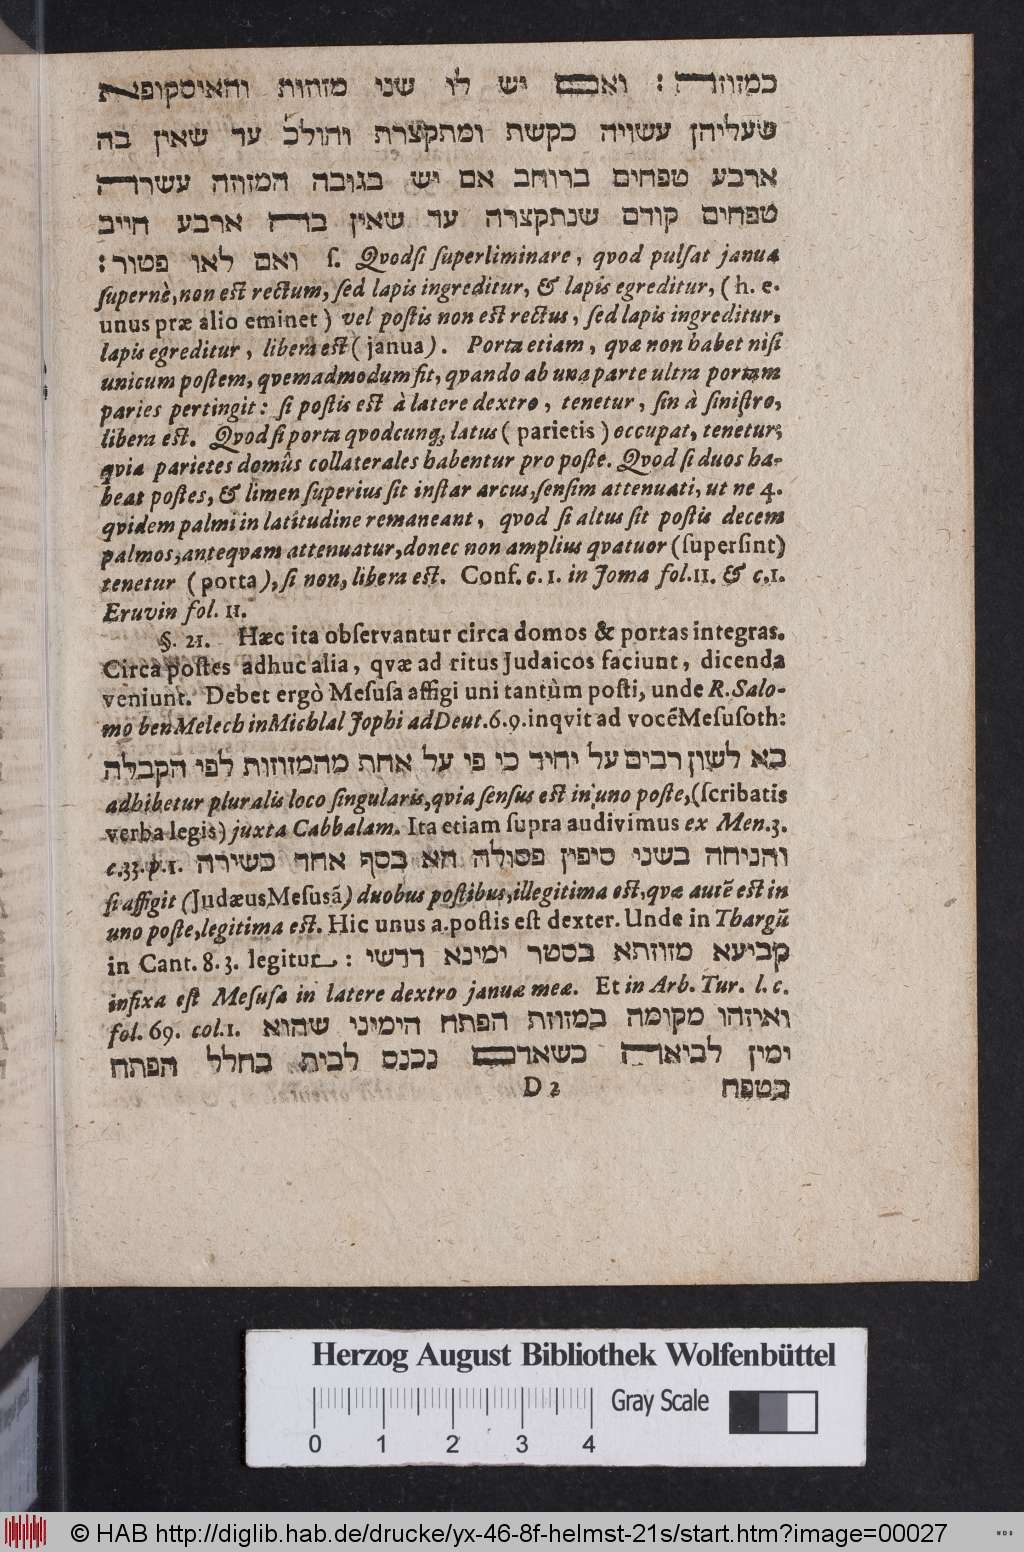 כמזוזה : ואם יש לו שני מזוזות והאיסקופות
שעליהן עשויה כקשת ומתקצרת והולכ׳ עד שאין בה
ארבע טפחים ברוחב אם יש בגובה המזוזה עשרה
טפחים קודם שנתקצרה עד שאין בה ארבע חייב
ואם לאו פטור : ſ. Qvodſi ſuperliminare, qvod pulſat janua
ſupernè, non eſt rectum, ſed lapis ingreditur, & lapis egreditur, (h. e.
unus præ alio eminet) vel poſtis non eſt rectus, ſed lapis ingreditur,
lapis egreditur, libera eſt (janua). Porta etiam, qvæ non habet niſi
unicum poſtem, qvemadmodum fit, qvando ab una parte ultra portam
paries pertingit: ſi poſtis eſt à latere dextro, tenetur, ſin à ſiniſtro,
libera eſt. Qvod ſi porta qvodcunq; latus (parietis) occupat, tenetur;
qvia parietes domûs collaterales habentur pro poſte. Qvod ſi duos ha-
beat poſtes, & limen ſuperius ſit inſtar arcus, ſenſim attenuati, ut ne 4.
qvidem palmi in latitudine remaneant, qvod ſi altus ſit poſtis decem
palmos, anteqvam attenuatur, donec non amplius qvatuor (ſuperſint)
tenetur (porta), ſi non, libera eſt. Conf. c. 1. in Joma fol. 11. & c. 1.
Eruvin fol. 11.
§. 21. Hæc ita obſervantur circa domos & portas integras.
Circa poſtes adhuc alia, qvæ ad ritus Judaicos faciunt, dicenda
veniunt. Debet ergò Meſuſa affigi uni tantùm poſti, unde R. Salo-
mo ben Melech in Michlal Jophi ad Deut. 6. 9. inqvit ad vocẽ Meſuſoth:
בא לשון רבים על יחיד כי פי על אחת מהמזוזות לפי הקבלה
adhibetur pluralis loco ſingularis, qvia ſenſus eſt in uno poſte, (ſcribatis
verba legis) juxta Cabbalam. Ita etiam ſupra audivimus ex Men. 3.
c. 33. p. 1. והניחה בשני סיפין פסולה הא בסף אחד כשירה
ſi affigit (Judæus Meſusã) duobus poſtibus, illegitima eſt, qvæ autẽ eſt in
uno poſte, legitima eſt. Hic unus a. poſtis eſt dexter. Unde in Thargũ
in Cant. 8. 3. legitur : קביעא מזוזתא בסטר ימינא דדשי
infixa eſt Meſuſa in latere dextro januæ meæ. Et in Arb. Tur. l. c.
fol. 69. col. 1. ואיזהו מקומה במזוזת הפתח הימיני שהוא
ימין לביאה כשאדם נכנס לבית בחלל הפתח
D 2 בטפח
Herzog August Bibliothek Wolfenbüttel
Gray Scale
0 1 2 3 4
© HAB http://diglib.hab.de/drucke/yx-46-8f-helmst-21s/start.htm?image=00027